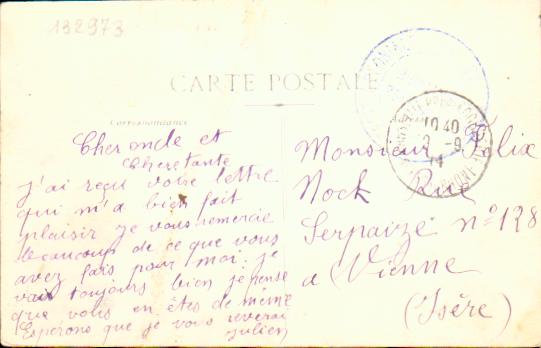 132973
CARTE POSTALE
Correspondance
Cher oncle et
Chere tante
j'ai reçu votre lettre
qui m'a bien fait
plaisir je vous remercie
beaucoup de ce que vous
avez fais pour moi. je
vais toujours bien je pense
que vous en êtes de meme
Esperons que je vous reverai
julien
Monsieur Félix
Nock Rue
Serpaize n° 128
a Vienne
(Isère)
10 40
2 - 9
14